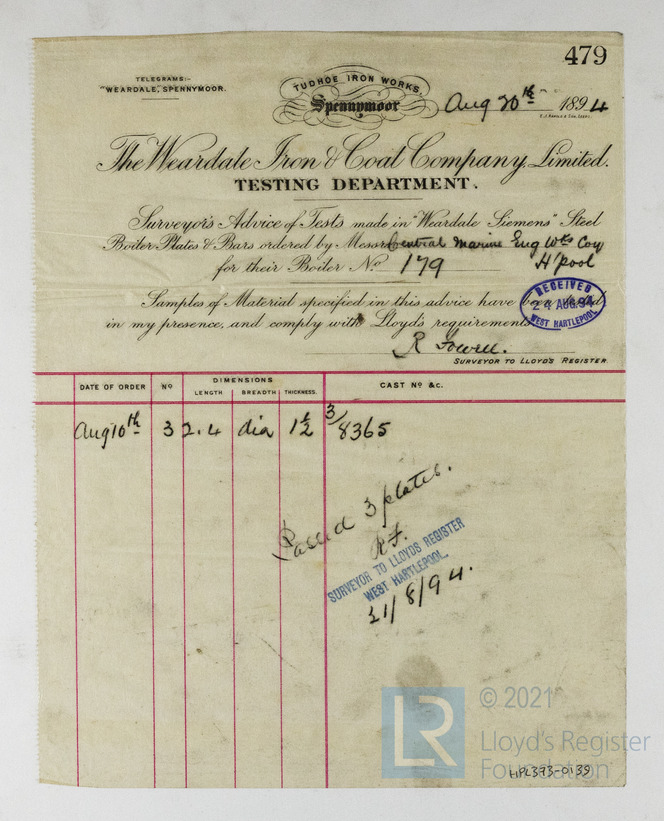 479
TELEGRAMS:-
"WEARDALE, SPENNYMOOR.
TUDHOE IRON WORKS,
Spennymoor
Aug 20th 1894
The Weardale Iron & Coal Company Limited.
TESTING DEPARTMENT.
Surveyor's Advice of Tests made in "Weardale Siemens" Steel
Boiler Plates & Bars ordered by Messrs Central Marine Eng Wks Coy
for their Boiler No 179 H'pool
Samples of Material specified in this advice have been tested
in my presence, and comply with Lloyd's requirements
RECEIVED
24 AUG.94
WEST HARTLEPOOL
R Fowell.
SURVEYOR TO LLOYD'S REGISTER
DATE OF ORDER No DIMENSIONS LENGTH BREADTH THICKNESS. CAST No &c.
Aug 10th 3 2.4 dia 1 1/2 3/8365
Passed 3 plates.
R.F.
SURVEYOR TO LLOYDS REGISTER
WEST HARTLEPOOL.
21/8/94.
LR
© 2021
Lloyd's Register
Foundation
HPL373-0139